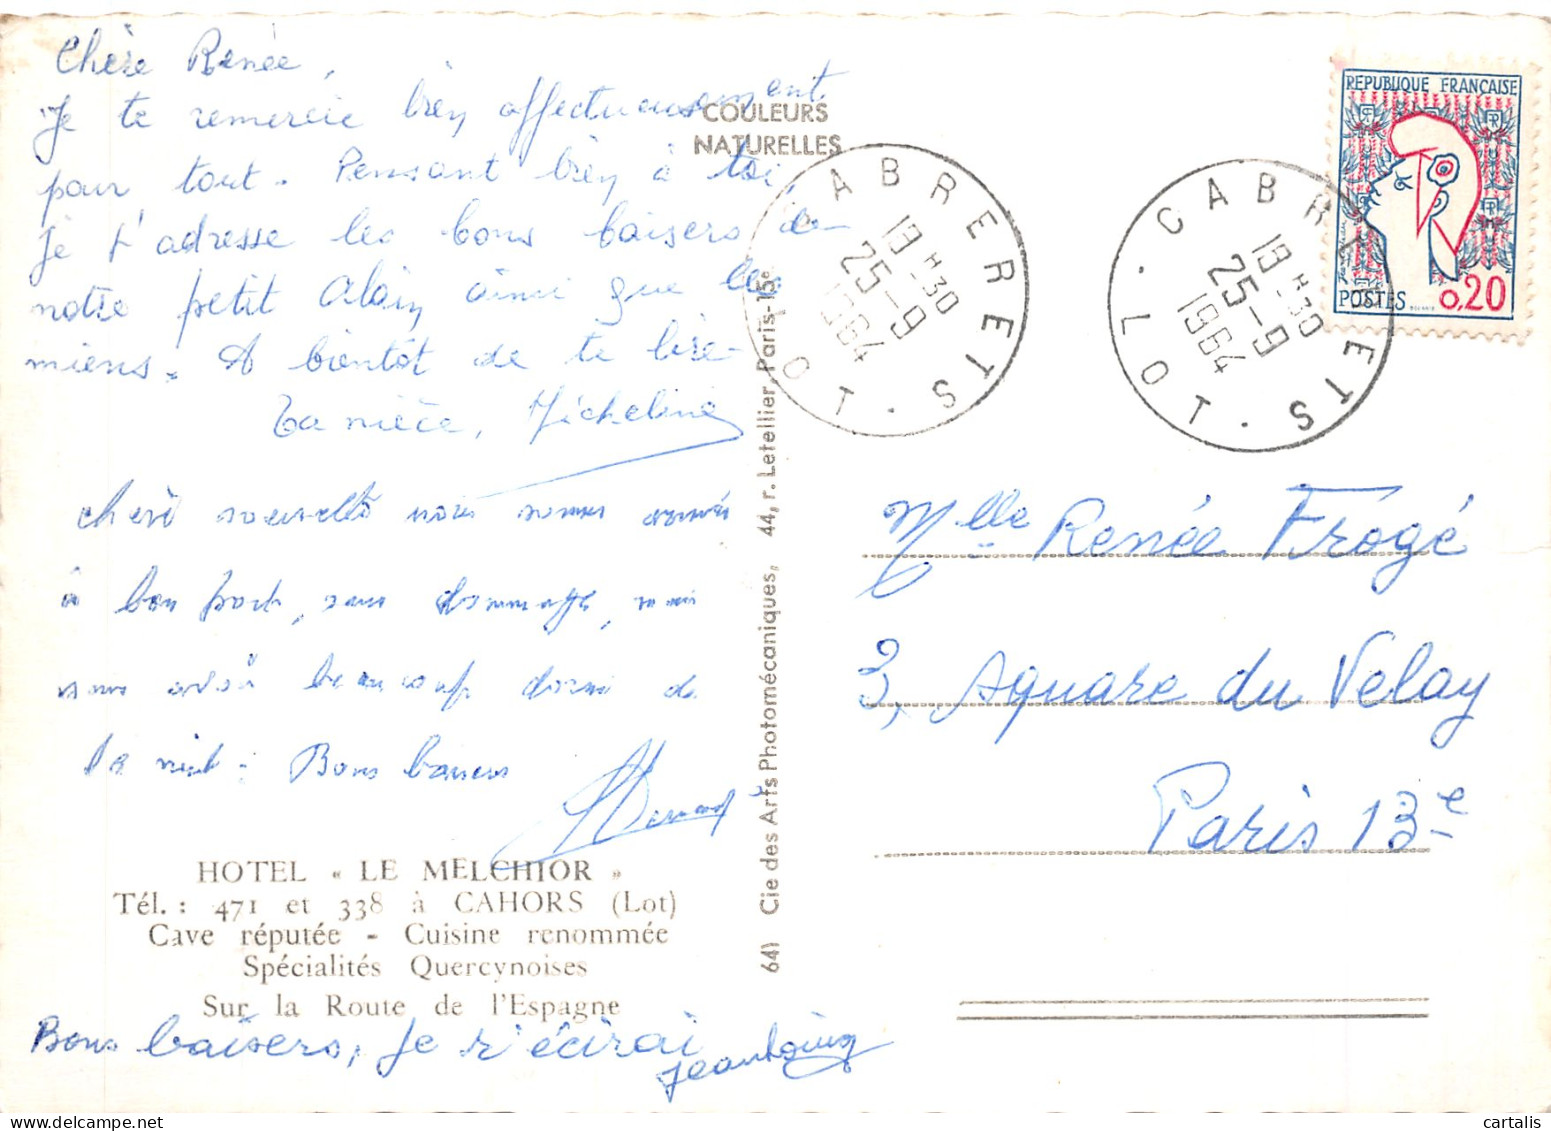 Chère Renée,
Je te remercie bien affectueusement
pour tout. Pensant bien à toi,
je t'adresse les bons baisers de
notre petit Alain ainsi que les
miens. A bientôt de te lire
Ta nièce, Micheline
COULEURS
NATURELLES
nous sommes arrivés
à bon port, sans dommage, mais
nous avons beaucoup dormi de
la nuit. Bons baisers
HOTEL « LE MELCHIOR »
Tél. : 471 et 338 à CAHORS (Lot)
Cave réputée - Cuisine renommée
Spécialités Quercynoises
Sur la Route de l'Espagne
Bons baisers, je t'écirai
641 Cie des Arts Photomécaniques, 44, r. Letellier, Paris-15e
CABRERETS
19 H 30
25-9
1964
LOT
CABRERETS
19 H 30
25-9
1964
LOT
REPUBLIQUE FRANCAISE
POSTES 0,20
Mlle Renée Frogé
3, square du Velay
Paris 13e
cartalis